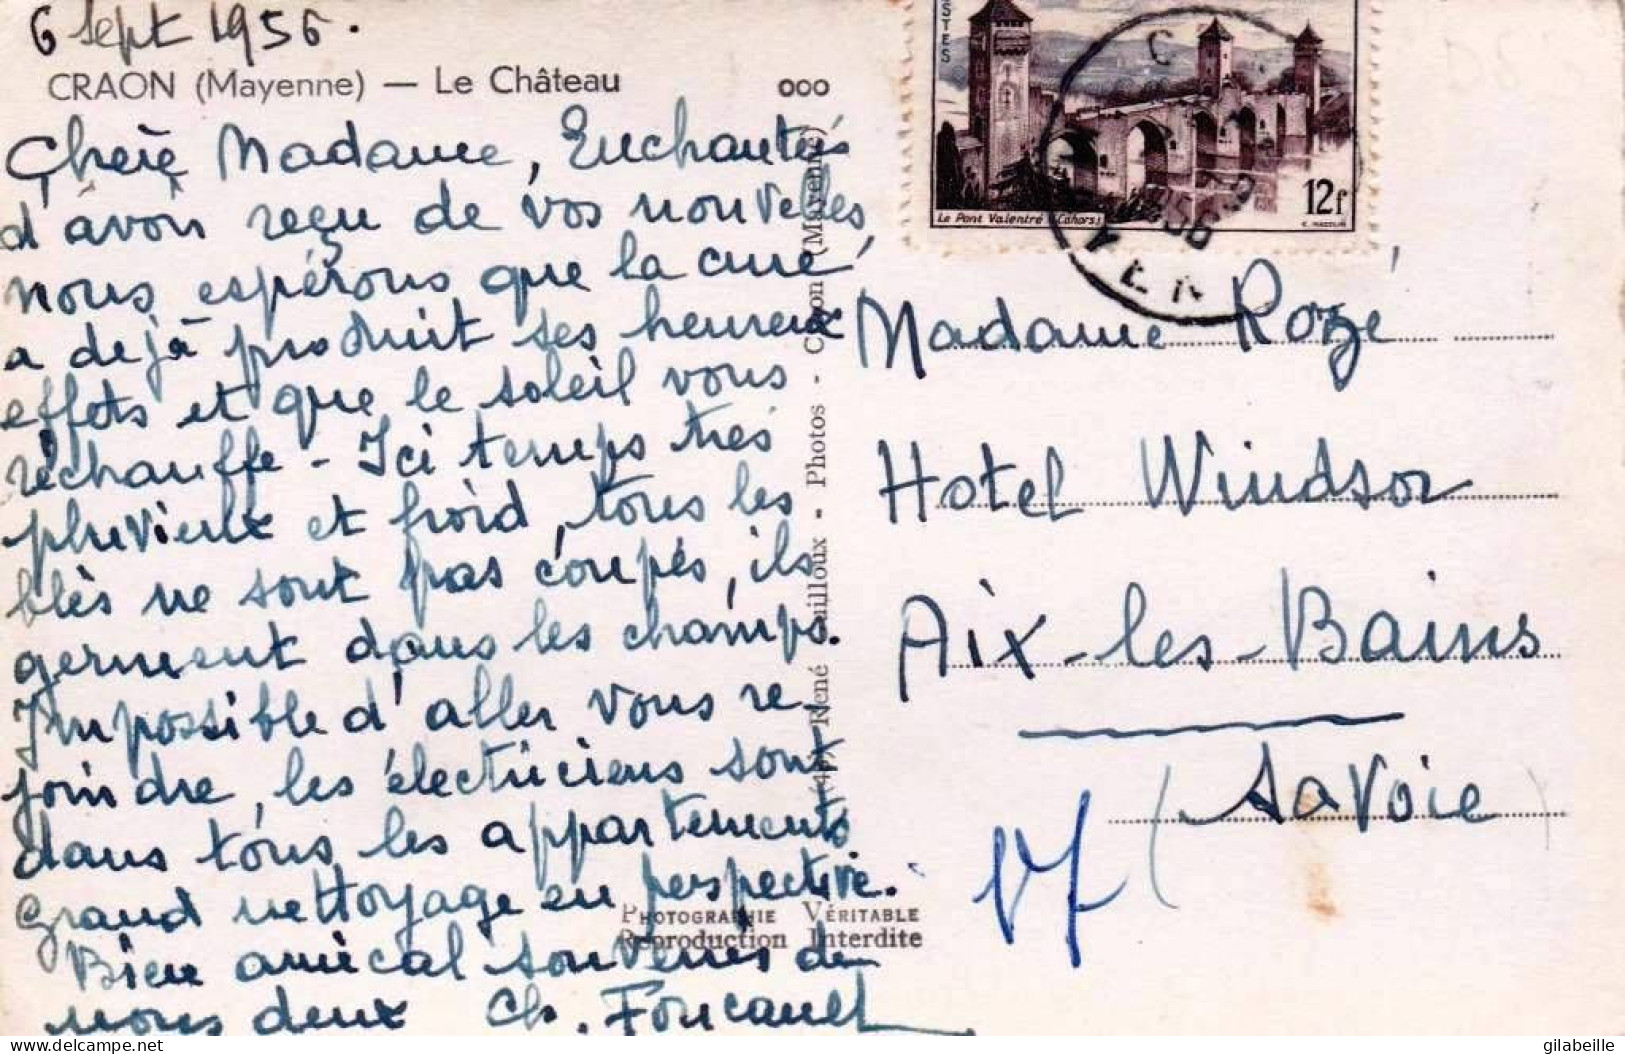 6 Sept 1956.
CRAON (Mayenne) — Le Château
Chère Madame, Enchantés
d'avoir reçu de vos nouvelles,
nous espérons que la cure
a dejà produit ses heureux
effets et que le soleil vous
réchauffe - Ici temps très
pluvieux et froid, tous les
blés ne sont pas coupés, ils
germent dans les champs.
Impossible d'aller vous re-
joindre, les électriciens sont
dans tous les appartements
Grand nettoyage en perspective.
Bien amical souvenir de
nous deux Ch. Foucault
ooo
René Guilloux - Photos - Craon (Mayenne)
PHOTOGRAPHIE VÉRITABLE
Reproduction Interdite
STES
Le Pont Valentré (Cahors)
12f
C. MAZELIN
1956
Madame Rozé
Hotel Windsor
Aix-les-Bains
Savoie
delcampe.net
gilabeille